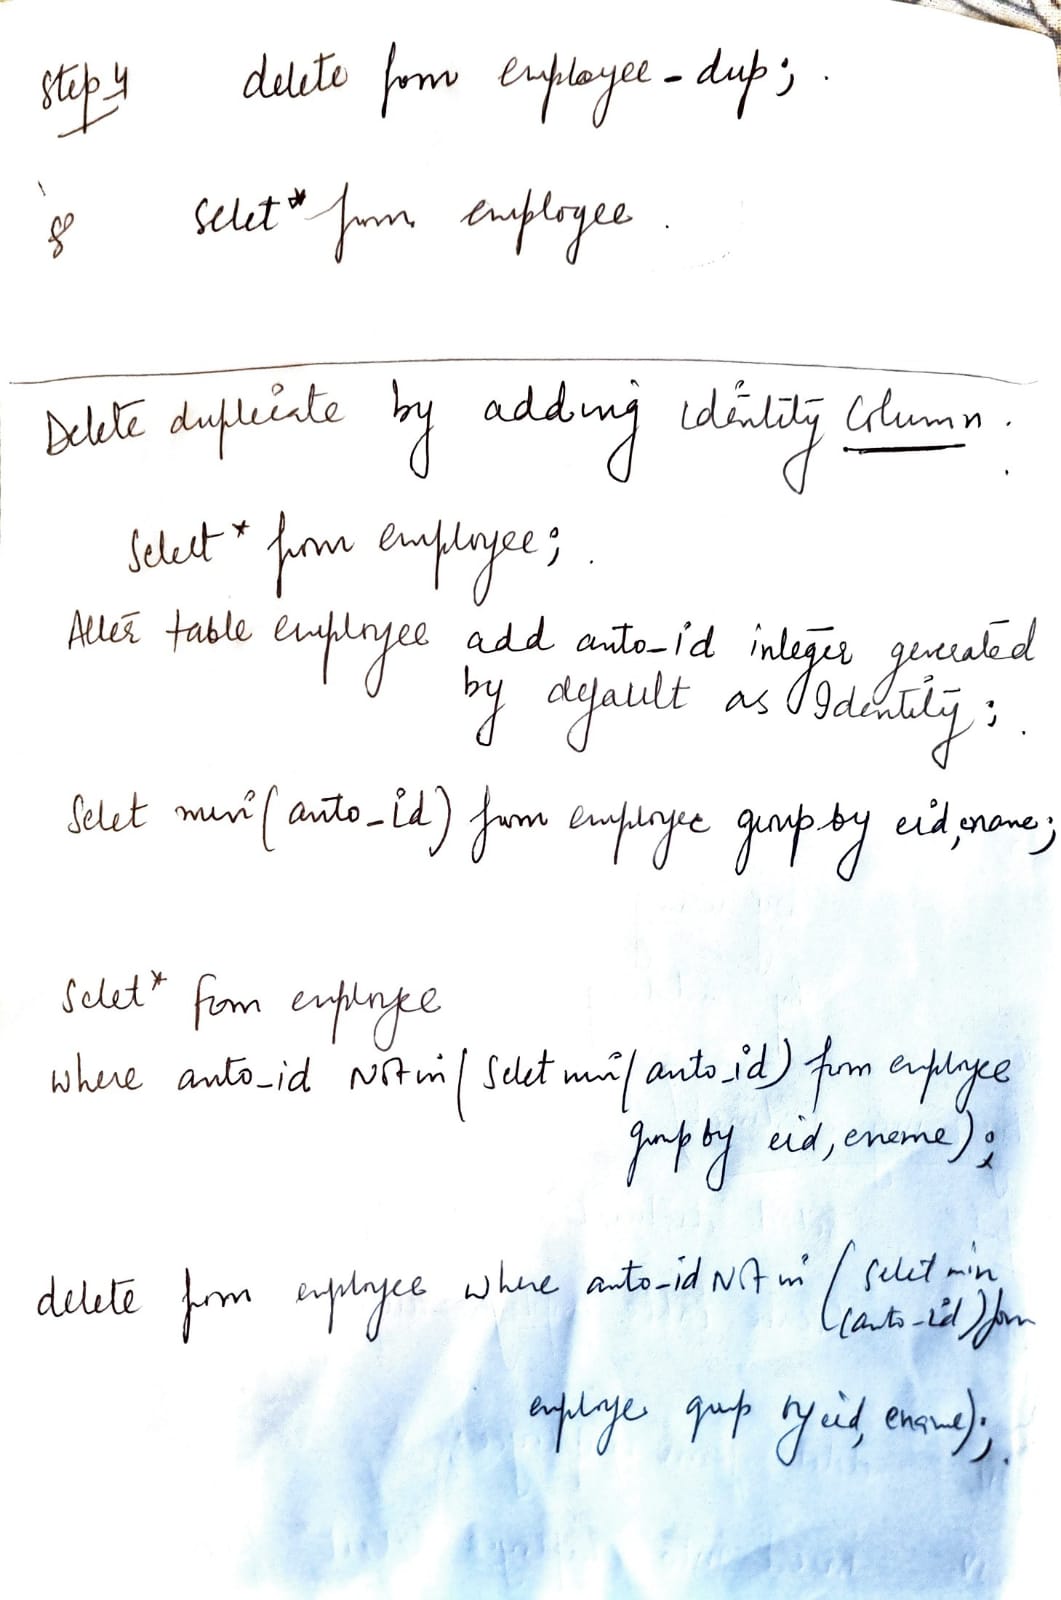 Step 4 delete from employee-dup;
& Select * from employee.
Delete duplicate by adding identity Column.
Select * from employee;
Alter table employee add auto_id integer generated
by default as Identity;
Selet min(auto_id) from employee group by eid,ename;
Selet * from employee
where auto_id NOT in (Selet min(auto_id) from employee
group by eid, eneme);
delete from employee where auto_id NOT in (Selet min
(auto_id) from
employe group by eid, ename);